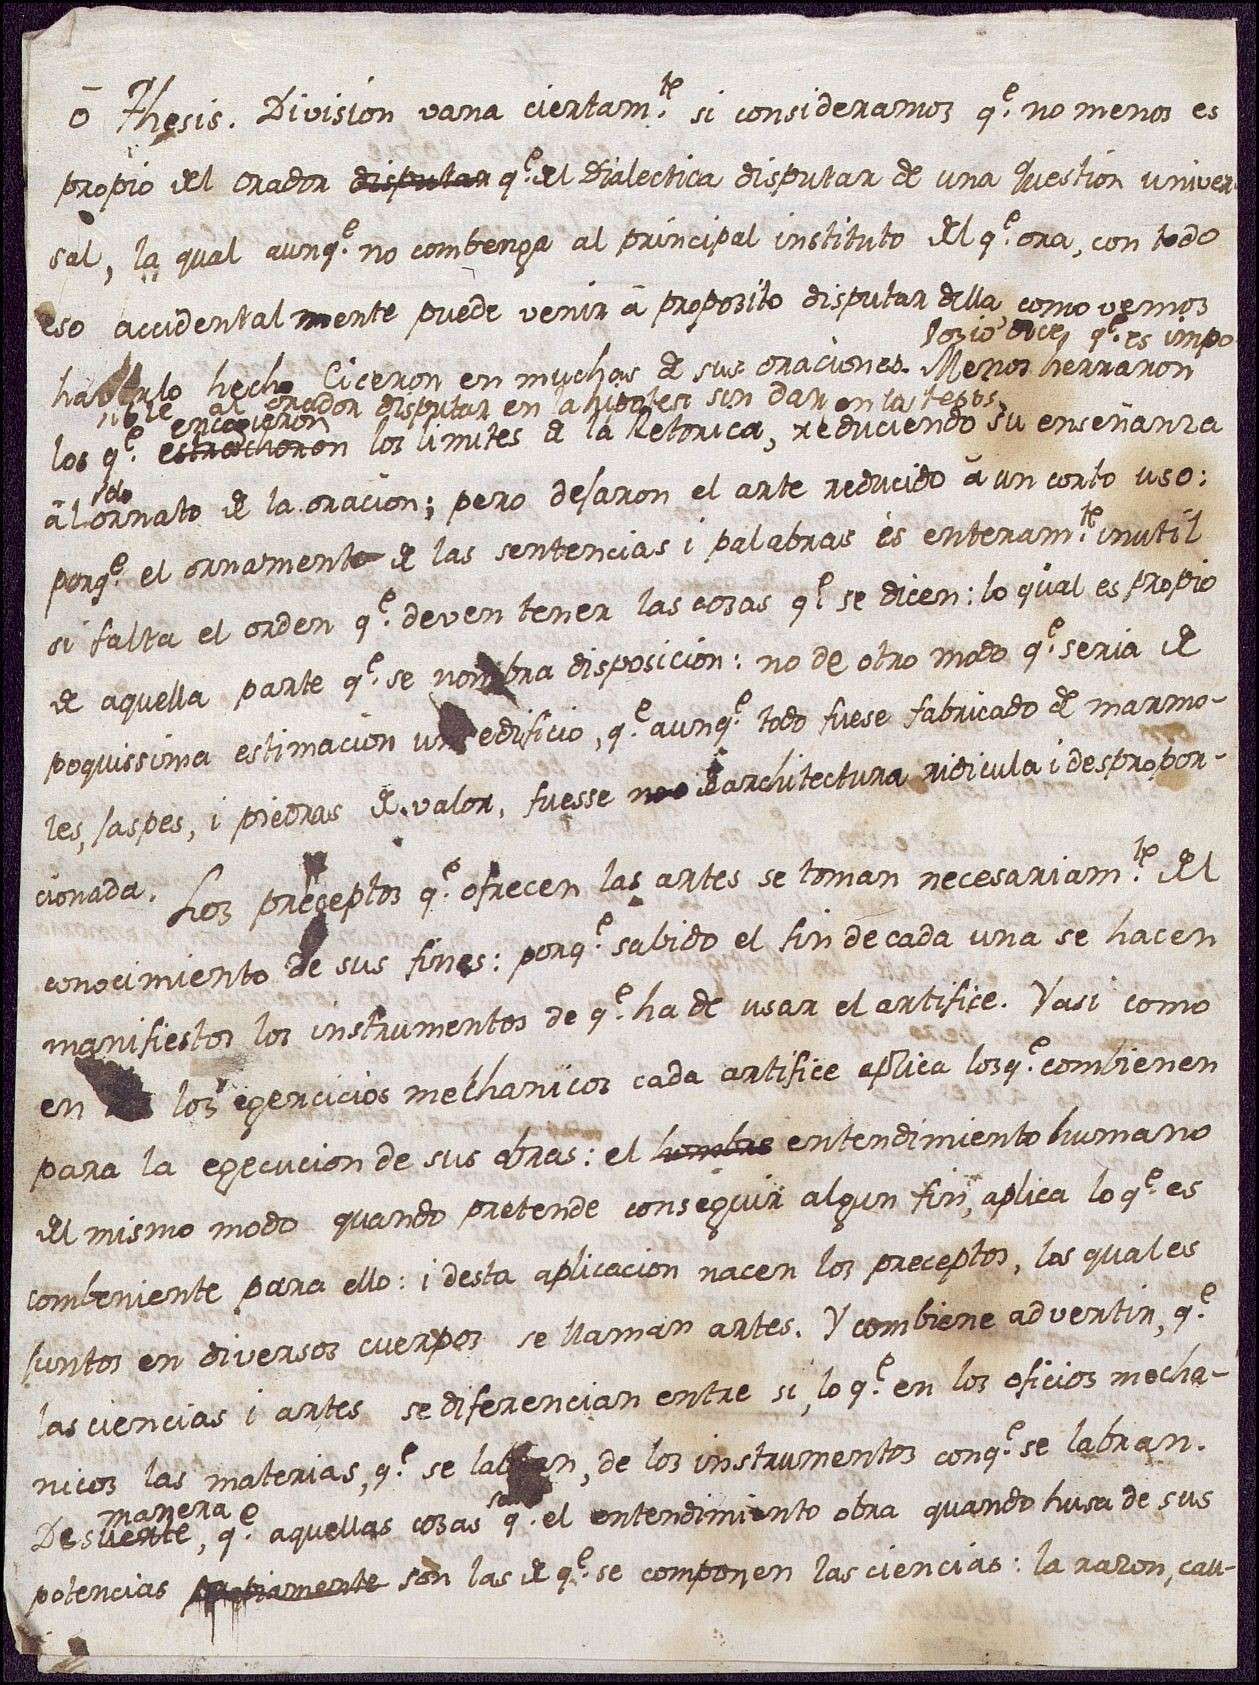 ō Thesis. Division vana ciertam.te si consideramos q.e no menos es
propio del orador disputar q.e del Dialectica disputar de una Question univer-
sal, la qual aunq.e no combenga al principal instituto del q.e ora, con todo
eso accidentalmente puede venir ā proposito disputar della, como vemos
Vosio dice, q.e es impo
hecho Ciceron en muchas de sus oraciones. Menos herraron
sible al orador disputar en la hipotesi sin dar en la tesis
encogieron
los q.e estracharon los limites de la Retorica, reduciendo su enseñanza
solo
āl ornato de la oracion; pero dejaron el arte reducido ā un corto uso:
porq.e el ornamento de las sentencias i palabras es enteram.te inutil
si falta el orden q.e deven tener las cosas q.e se dicen: lo qual es propio
de aquella parte q.e se nombra disposicion: no de otro modo q.e seria de
poquissima estimacion un edificio, q.e aunq.e todo fuese fabricado de marmo-
les, jaspes, i piedras de valor, fuesse de architectura ridicula i despropor-
cionada. Los preceptos q.e ofrecen las artes se toman necesariam.te del
conocimiento de sus fines: porq.e sabido el fin de cada una se hacen
manifiestos los instrumentos de q.e ha de usar el artifice. Y asi como
en los egercicios mechanicos cada artifice aplica los q.e combienen
para la egecucion de sus obras: el hombre entendimiento humano
del mismo modo quando pretende conseguir algun fin, aplica lo q.e es
combeniente para ello: i desta aplicacion nacen los preceptos, los quales
juntos en diversos cuerpos se llaman artes. Y combiene advertir, q.e
las ciencias i artes se diferencian entre si, lo q.e en los oficios mecha-
nicos las materias, q.e se labran, de los instrumentos con q.e se labran.
manera
De suerte, q.e aquellas cosas q.e el entendimiento obra quando husa de sus
potencias son las de q.e se componen las ciencias: la razon, cau-